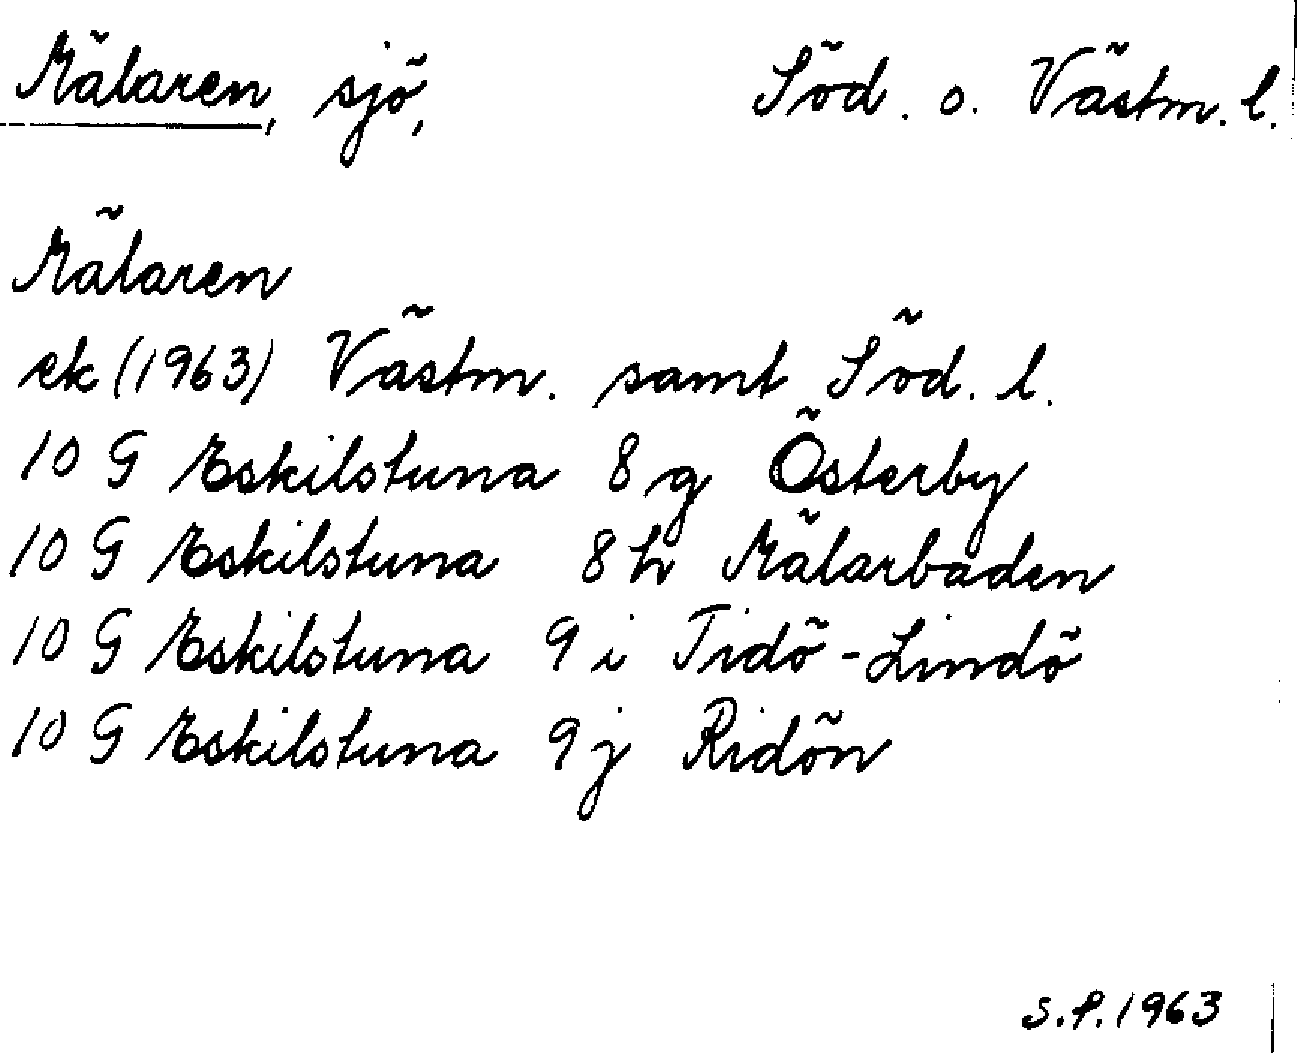 Mälaren, sjö, Söd. o. Västm. l.
Mälaren
ek (1963) Västm. samt Söd. l.
10 G Eskilstuna 8 g Österby
10 G Eskilstuna 8 h Mälarbaden
10 G Eskilstuna 9 i Tidö-Lindö
10 G Eskilstuna 9 j Ridön
S.P. 1963